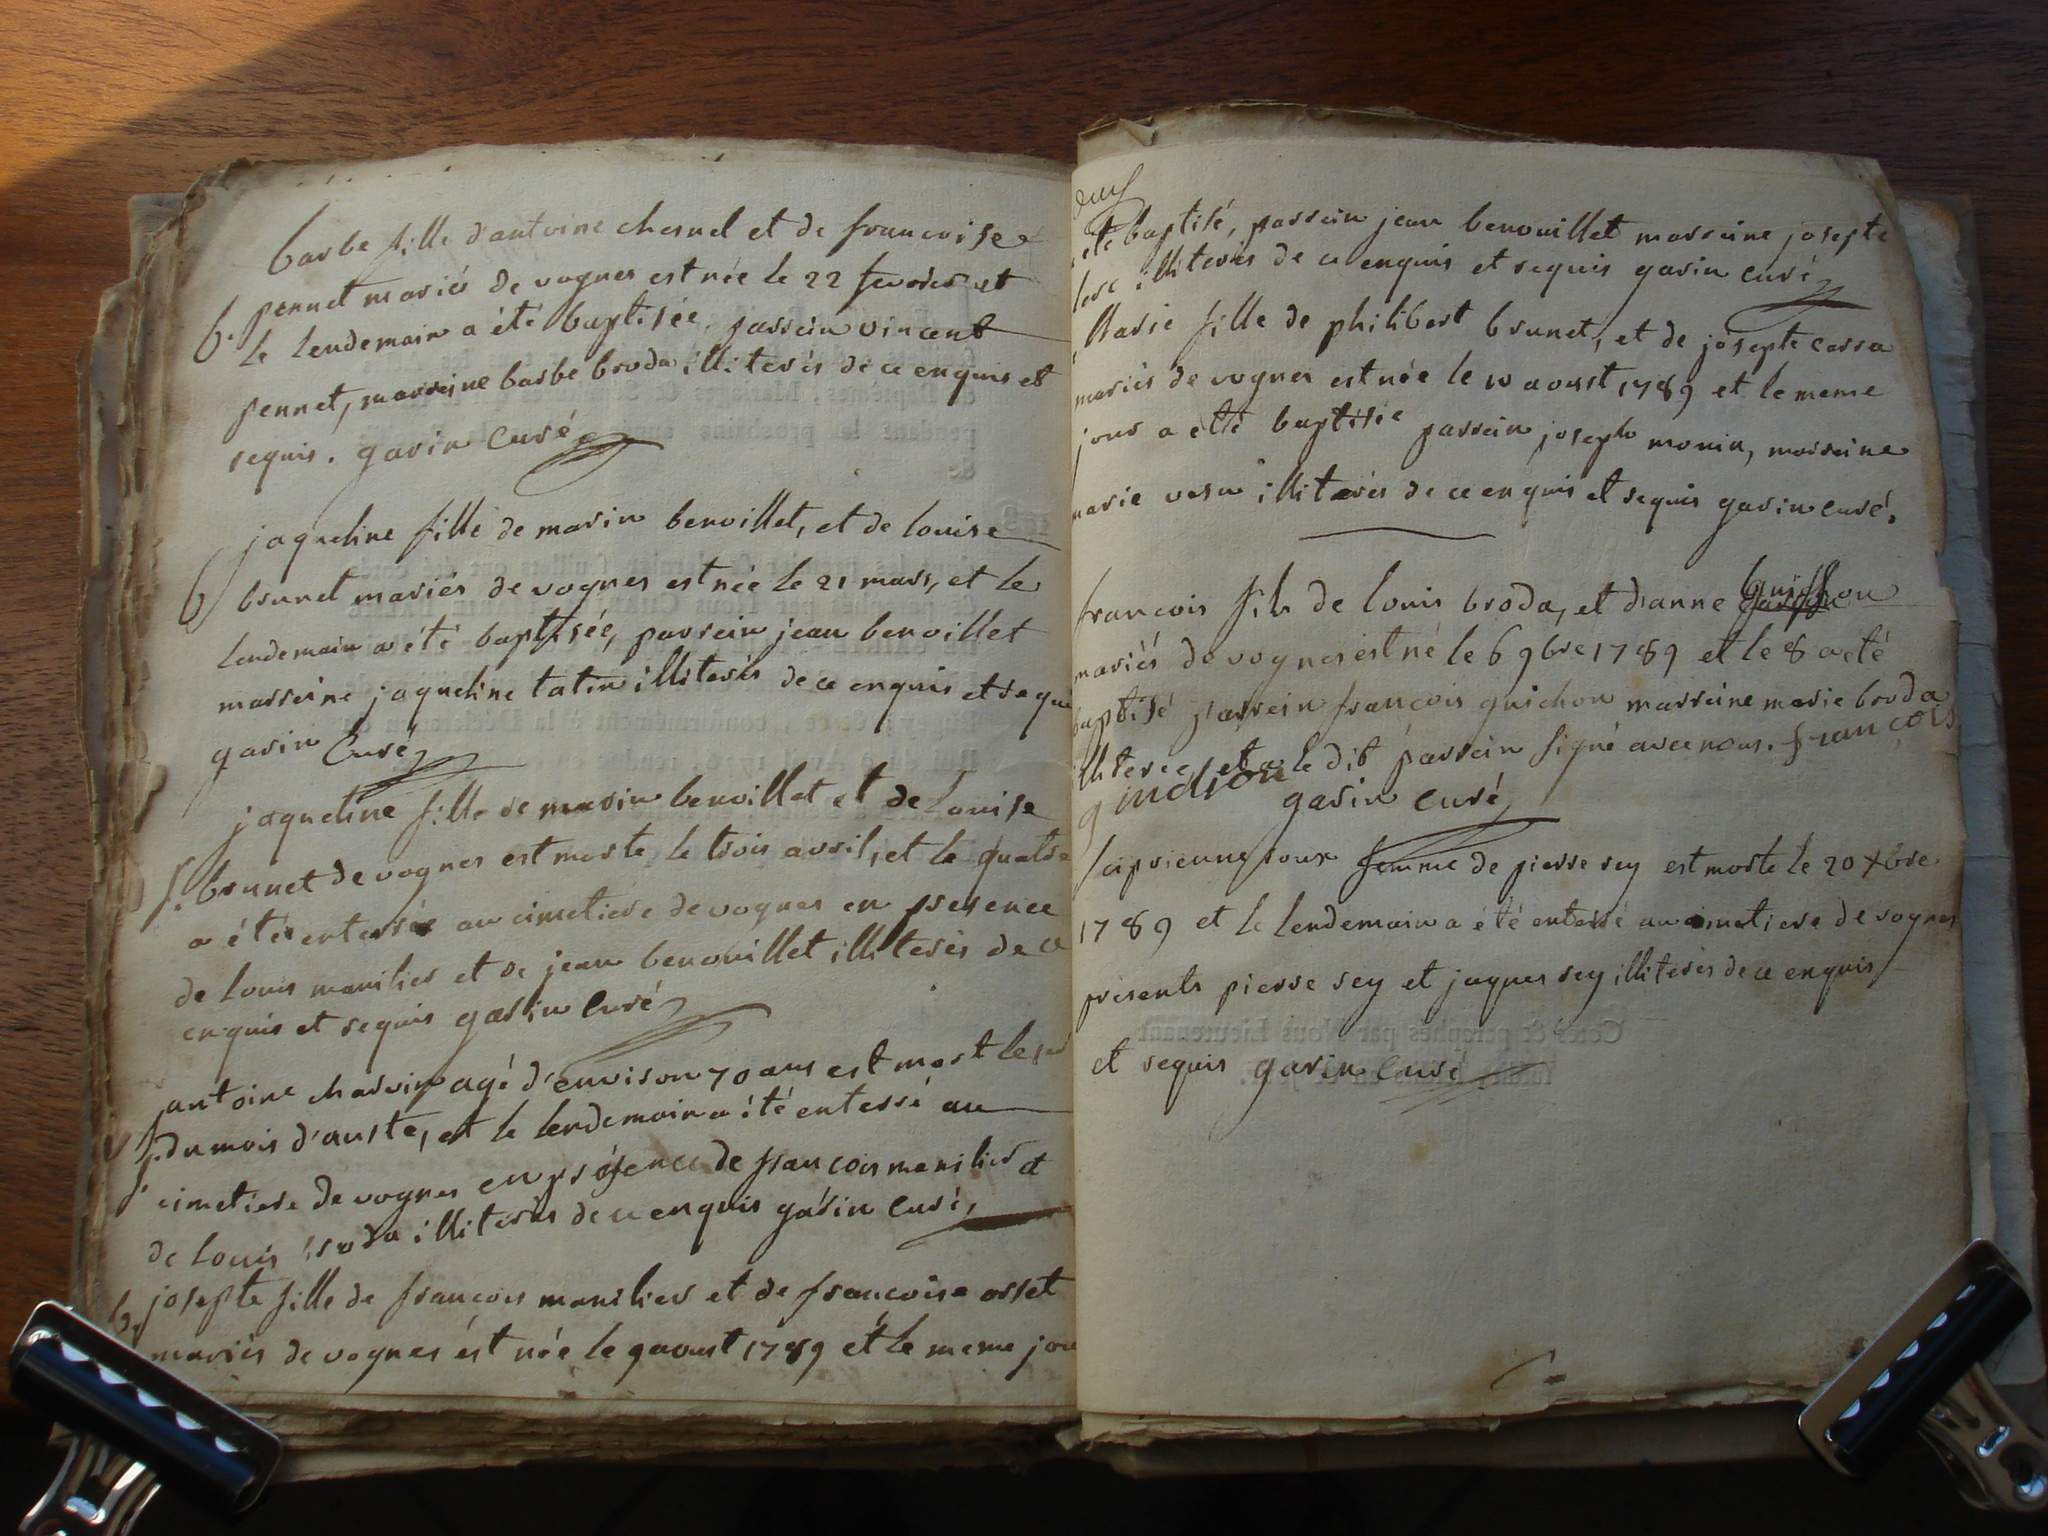 barbe fille d'antoine chesnel et de francoise
b. pennet mariés de vognes est née le 22 fevrier et
le lendemain a été baptisée, parrein vincent
pennet, marreine barbe broda illiterés de ce enquis et
requis. garin curé
jaqueline fille de marin benoillet, et de louise
b brunet mariés de vognes est née le 21 mars, et le
lendemain a été baptisée, parrein jean benoillet
marreine jaqueline tatin illiterés de ce enquis et requi
garin Curé
jaqueline fille de marin benoillet et de Louise
f. brunet de vognes est morte le trois avril, et le quatre
a été enterrée au cimetiere de vognes en presence
de louis manilier et de jean benouillet illiterés de ce
enquis et requis garin Curé
antoine charvin agé d'environ 70 ans est mort le
du mois d'auste, et le lendemain a été enterré au
cimetiere de vognes en présence de francois manilier et
de louis broda illiterés de ce enquis garin Curé,
b. josepte fille de francois manilier et de francoise
mariés de vognes est née le 9 aoust 1789 et le meme jou
été baptisé, parrein jean benouillet marreine josepte
illiterés de ce enquis et requis garin Curé
Marie fille de philibert brunet, et de josepte carra
mariés de vognes est née le 10 aoust 1789 et le meme
jour a etté baptisée parrein joseph monin, marreine
marie illiterés de ce enquis et requis garin curé.
francois fils de louis broda, et d'anne guichon
mariés de vognes est né le 6 9bre 1789 et le 8 a été
baptisé parrein françois guichon marreine marie broda
illiterée, et a le dit parrein signé avec nous. françois
guichon garin curé
femme de pierre rey est morte le 20 xbre
1789 et le lendemain a été enterré au cimetiere de vognes
présents pierre rey et jaques rey illiterés de ce enquis
et requis garin Curé